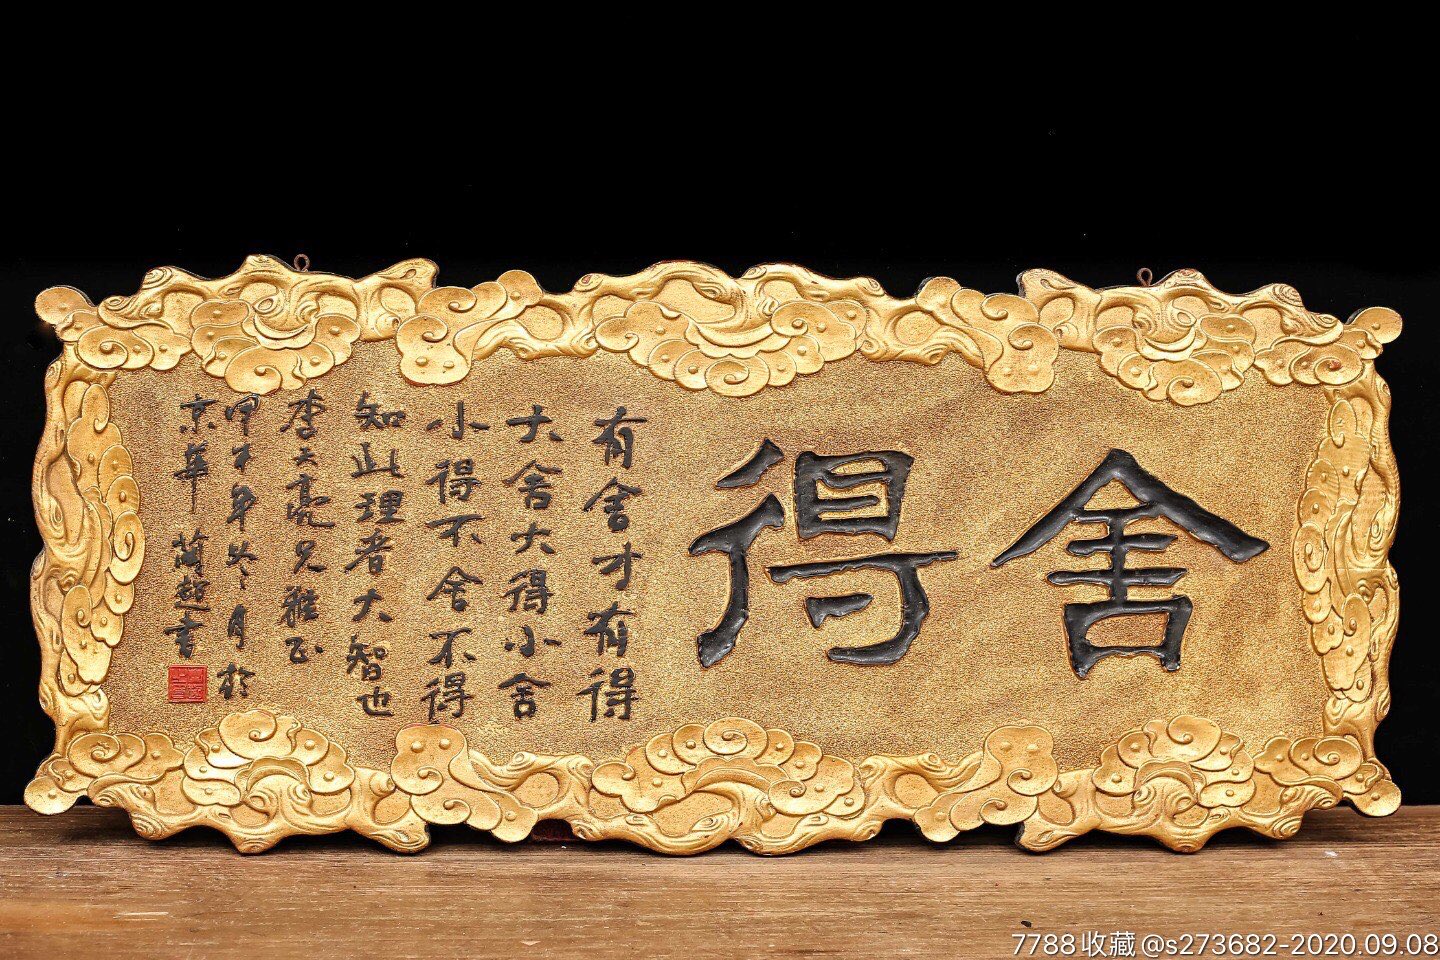 舍得
有舍才有得
大舍大得小舍
小得不舍不得
知此理者大智也
李天亮兄雅正
甲午年冬月於
京華蘭越書
7788收藏@s273682-2020.09.08